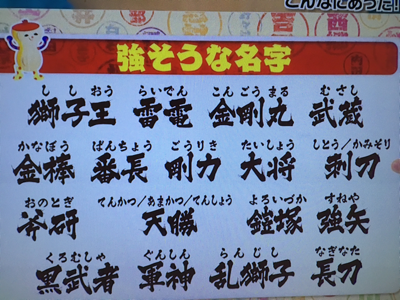 こんなにあった!
強そうな名字
ししおう らいでん こんごうまる むさし
獅子王 雷電 金剛丸 武蔵
かなぼう ばんちょう ごうりき たいしょう しとう/かみそり
金棒 番長 剛力 大将 刺刀
おのとぎ てんかつ/あまかつ/てんしょう よろいづか すねや
斧研 天勝 鎧塚 強矢
くろむしゃ ぐんしん らんじし なぎなた
黒武者 軍神 乱獅子 長刀